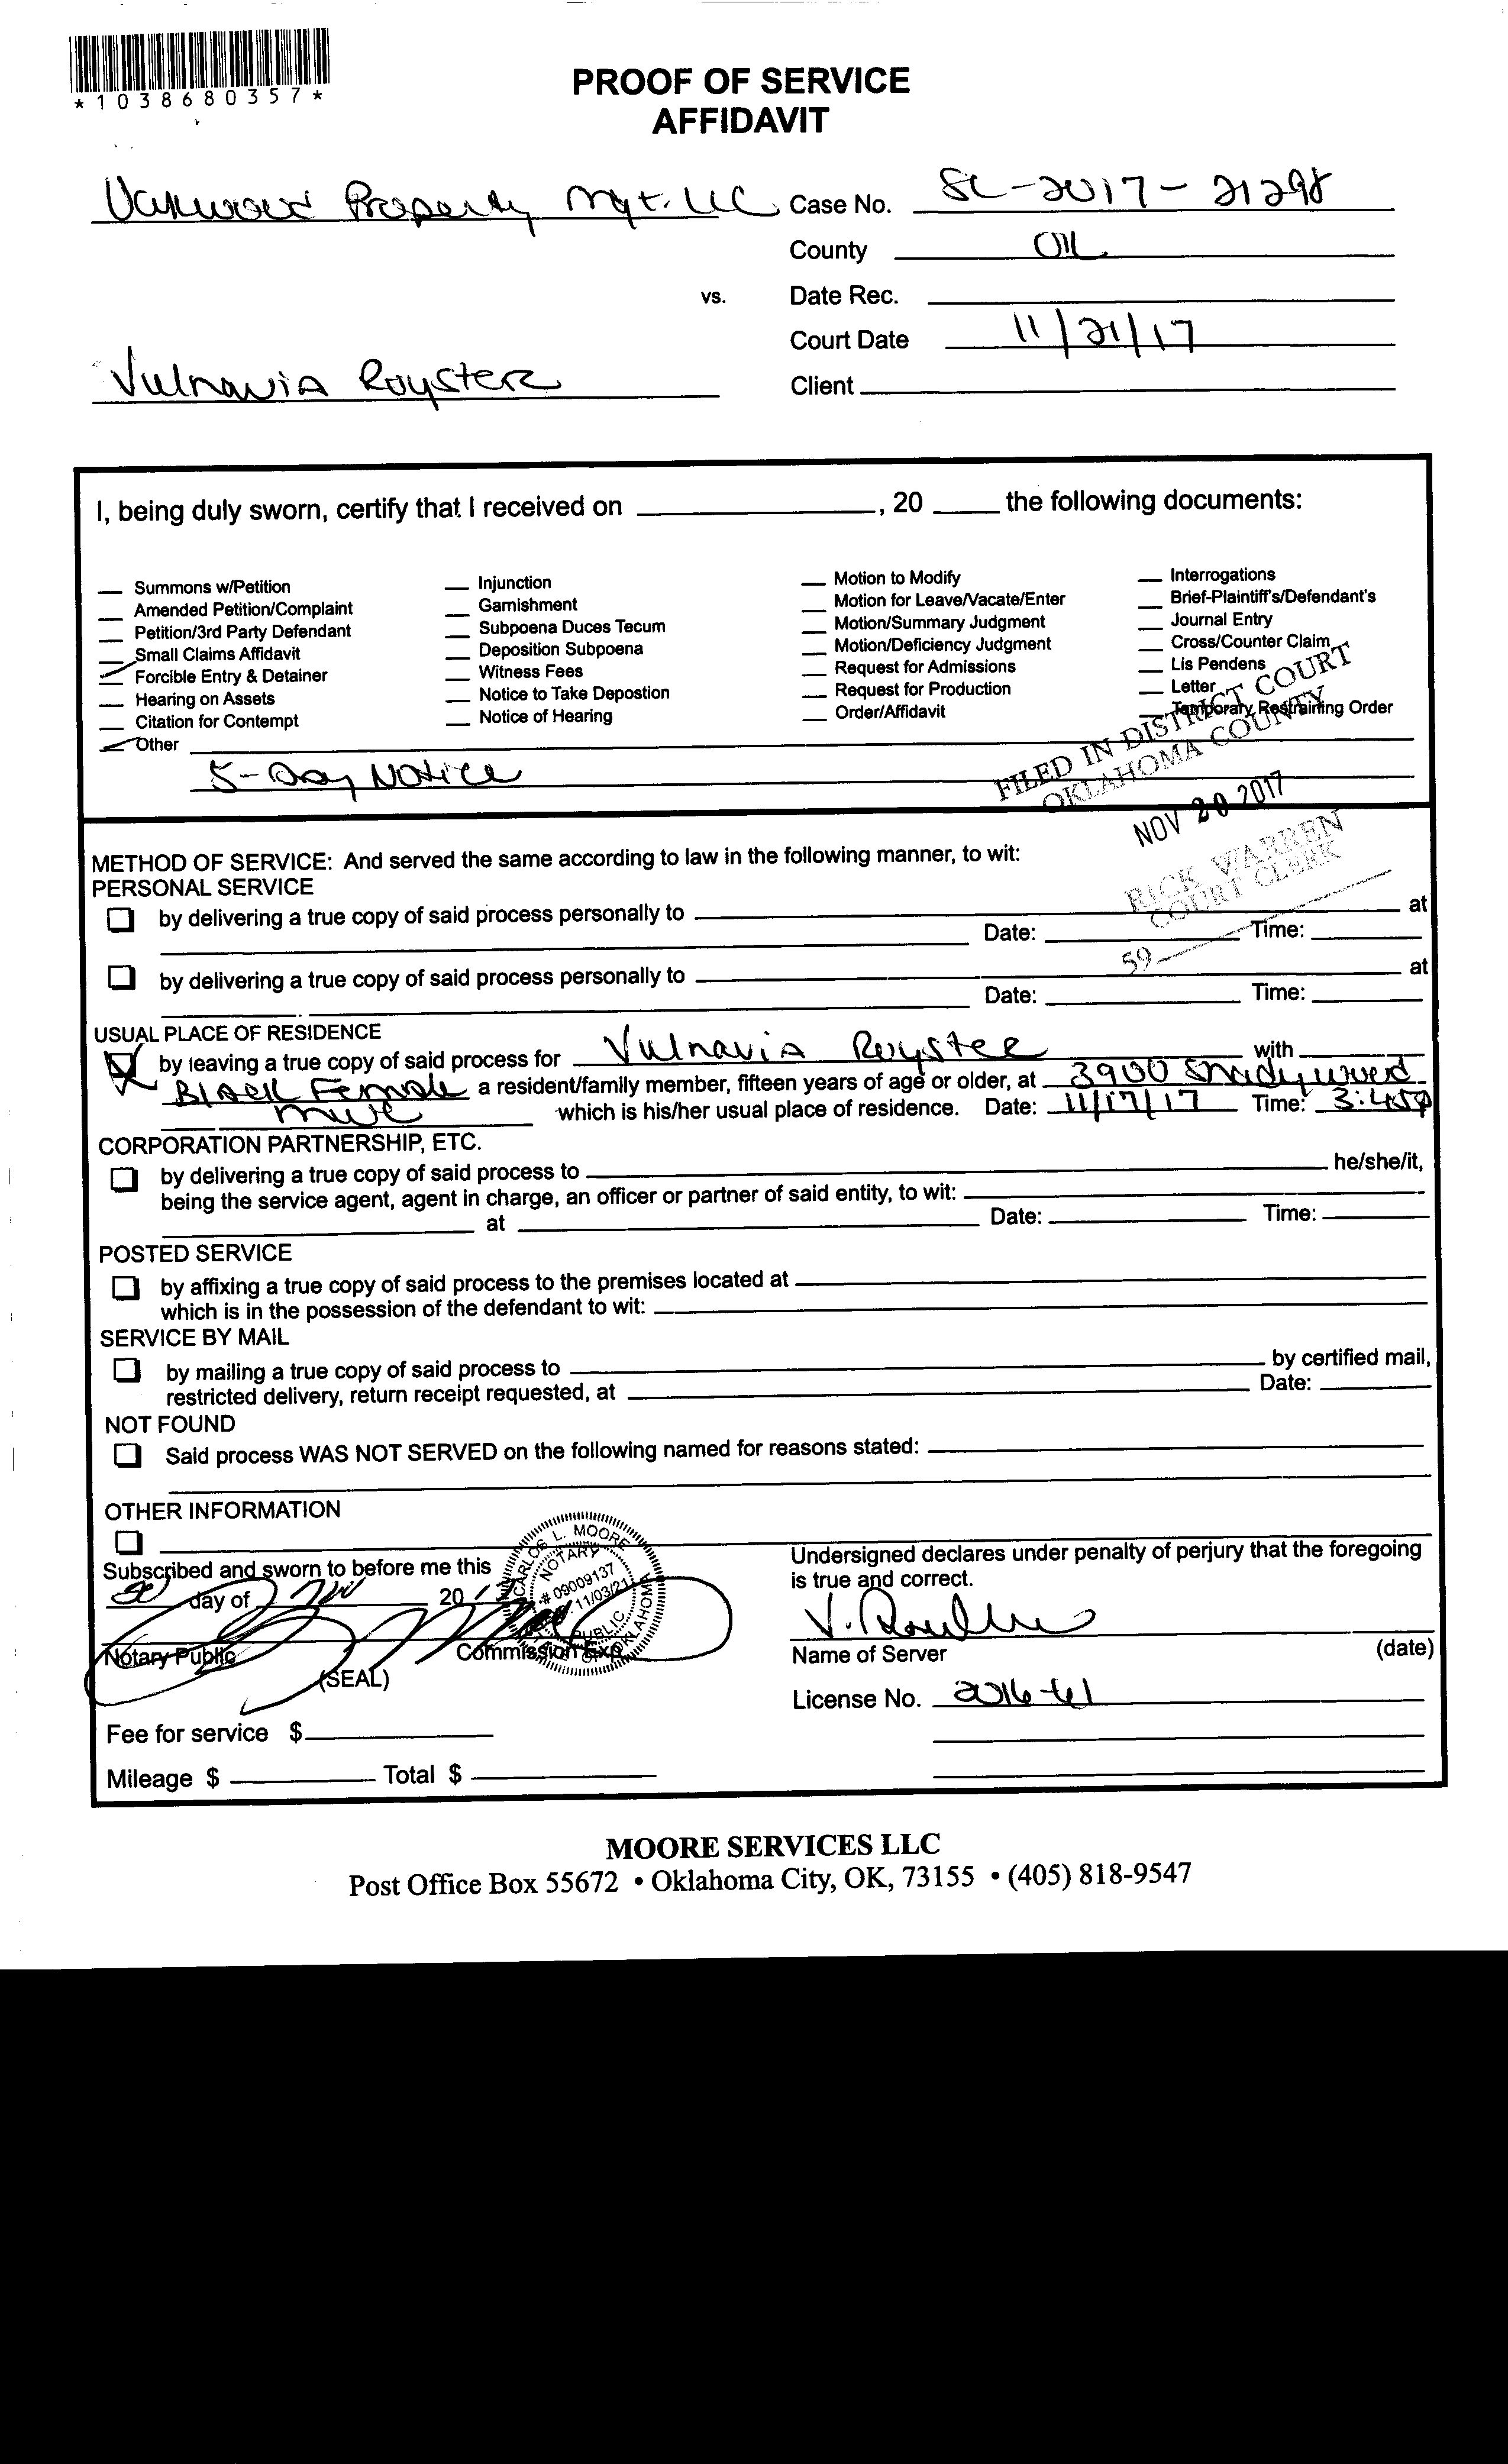 *1038680357*
PROOF OF SERVICE
AFFIDAVIT
Property Mgt. LLC Case No. SC-2017-21298
County OK
vs. Date Rec.
Court Date 11/21/17
Vulnavia Royster Client
I, being duly sworn, certify that I received on ________, 20 ____ the following documents:
Summons w/Petition
Amended Petition/Complaint
Petition/3rd Party Defendant
Small Claims Affidavit
Forcible Entry & Detainer
Hearing on Assets
Citation for Contempt
Other
5-Day Notice
Injunction
Garnishment
Subpoena Duces Tecum
Deposition Subpoena
Witness Fees
Notice to Take Depostion
Notice of Hearing
Motion to Modify
Motion for Leave/Vacate/Enter
Motion/Summary Judgment
Motion/Deficiency Judgment
Request for Admissions
Request for Production
Order/Affidavit
Interrogations
Brief-Plaintiff's/Defendant's
Journal Entry
Cross/Counter Claim
Lis Pendens
Letter
Temporary Restraining Order
FILED IN DISTRICT COURT
OKLAHOMA COUNTY
NOV 20 2017
RICK WARREN
COURT CLERK
59
METHOD OF SERVICE: And served the same according to law in the following manner, to wit:
PERSONAL SERVICE
by delivering a true copy of said process personally to ________ at
Date: ________ Time: ________
by delivering a true copy of said process personally to ________ at
Date: ________ Time: ________
USUAL PLACE OF RESIDENCE
by leaving a true copy of said process for Vulnavia Royster with
Black Female a resident/family member, fifteen years of age or older, at 3900 Shadywood
MWC which is his/her usual place of residence. Date: 11/17/17 Time: 3:45p
CORPORATION PARTNERSHIP, ETC.
by delivering a true copy of said process to ________ he/she/it,
being the service agent, agent in charge, an officer or partner of said entity, to wit: ________
at ________ Date: ________ Time: ________
POSTED SERVICE
by affixing a true copy of said process to the premises located at ________
which is in the possession of the defendant to wit: ________
SERVICE BY MAIL
by mailing a true copy of said process to ________ by certified mail,
restricted delivery, return receipt requested, at ________ Date: ________
NOT FOUND
Said process WAS NOT SERVED on the following named for reasons stated: ________
OTHER INFORMATION
Subscribed and sworn to before me this
day of 20 17
Notary Public Commission Exp.
(SEAL)
CARLOS L. MOORE
NOTARY
# 09009137
11/03/21
PUBLIC
OKLAHOMA
Fee for service $
Mileage $ ________ Total $ ________
Undersigned declares under penalty of perjury that the foregoing
is true and correct.
Name of Server (date)
License No. 2016-41
MOORE SERVICES LLC
Post Office Box 55672 • Oklahoma City, OK, 73155 • (405) 818-9547